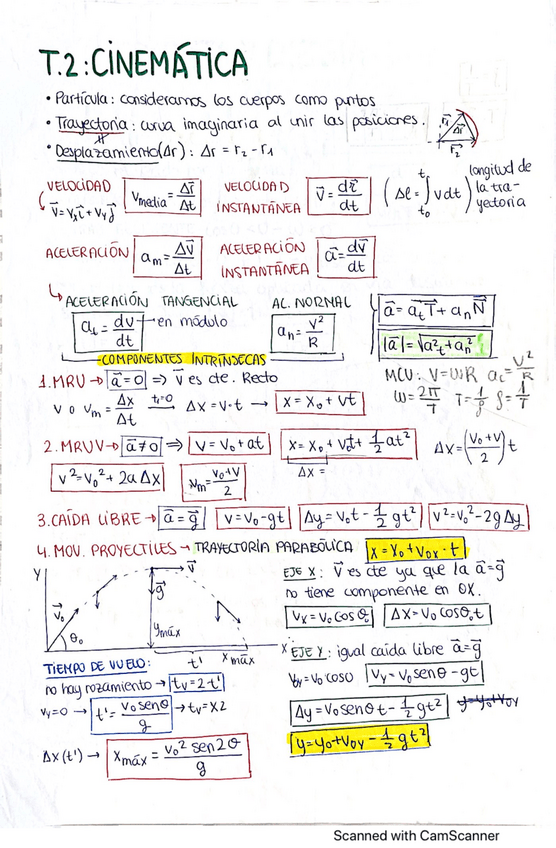 T.2: CINEMÁTICA
• Partícula: consideramos los cuerpos como puntos
• Trayectoria: curva imaginaria al unir las posiciones.
• Desplazamiento (Δr): Δr = r₂ - r₁
r₁ Δr r₂
VELOCIDAD v⃗ = vₓi⃗ + vᵧj⃗ v media = Δr⃗/Δt VELOCIDAD INSTANTÁNEA v⃗ = dr⃗/dt (Δl = ∫ₜ₀ᵗ¹ v dt) longitud de la trayectoria
ACELERACIÓN aₘ = Δv⃗/Δt ACELERACIÓN INSTANTÁNEA a⃗ = dv⃗/dt
ACELERACIÓN TANGENCIAL aₜ = dv/dt → en módulo AC. NORMAL aₙ = v²/R a⃗ = aₜT⃗ + aₙN⃗
|a⃗| = √(a²ₜ + aₙ²)
COMPONENTES INTRÍNSECAS
MCU: V = ωR a꜀ = V²/R
ω = 2π/T T = 1/f f = 1/T
1. MRU → a⃗ = 0 ⇒ v⃗ es cte. Recto
v o vₘ = Δx/Δt t₀=0 → Δx = v·t → x = x₀ + vt
2. MRUV → a⃗ ≠ 0 ⇒ v = v₀ + at x = x₀ + v₀t + 1/2 at² Δx = ((v₀+v)/2) t
Δx =
v² = v₀² + 2a Δx vₘ = (v₀+v)/2
3. CAÍDA LIBRE → a⃗ = g⃗ v = v₀ - gt Δy = v₀t - 1/2 gt² v² = v₀² - 2g Δy
4. MOV. PROYECTILES → TRAYECTORIA PARABÓLICA x = x₀ + v₀ₓ · t
Y v⃗ g⃗ v⃗₀ θ₀ yₘáx t' xₘáx X
EJE X: v⃗ es cte ya que la a⃗ = g⃗
no tiene componente en OX.
Vₓ = V₀ cos θ₀ Δx = v₀ cosθ₀t
EJE Y: igual caída libre a⃗ = g⃗
v₀ᵧ = v₀ cos θ vᵧ = v₀ sen θ - gt
Δy = v₀ sen θ t - 1/2 gt² y = y₀ + v₀y
y = y₀ + v₀ᵧ - 1/2 gt²
TIEMPO DE VUELO:
no hay rozamiento → tᵥ = 2·t'
vᵧ = 0 → t' = v₀ sen θ/g → tᵥ = x2
Δx (t') → xₘáx = v₀² sen 2θ/g
Scanned with CamScanner